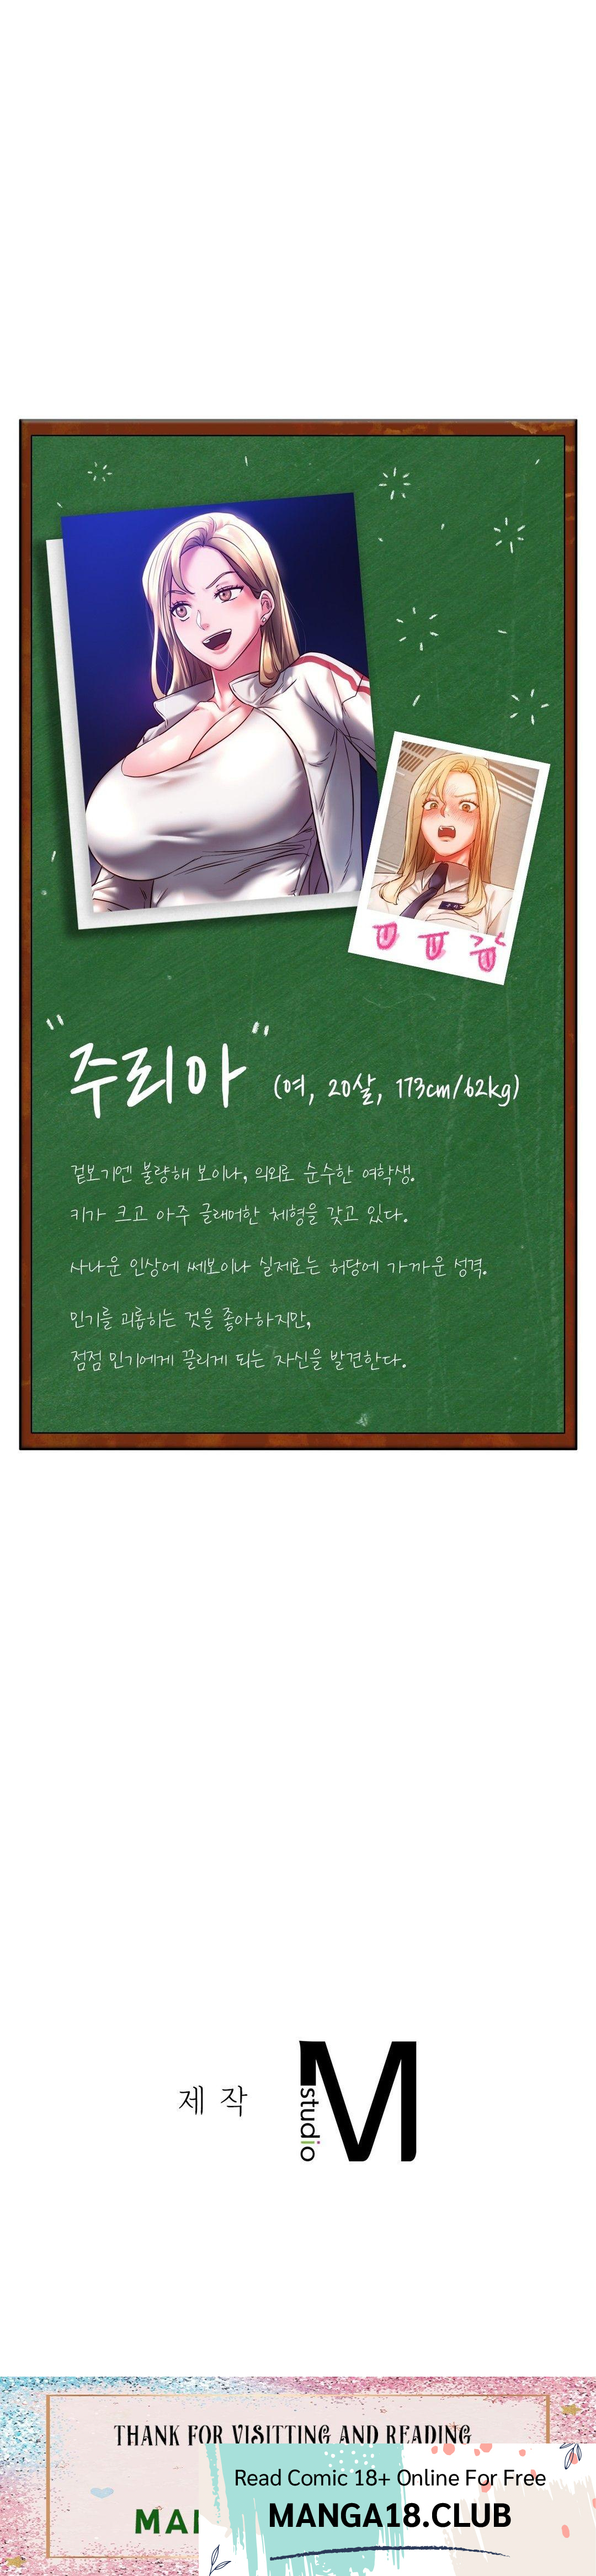 "주리아" (여, 20살, 173cm/62kg)
겉보기엔 불량해 보이나, 의외로 순수한 여학생.
키가 크고 아주 글래머한 체형을 갖고 있다.
사나운 인상에 쎄보이나 실제로는 허당에 가까운 성격.
민기를 괴롭히는 것을 좋아하지만,
점점 민기에게 끌리게 되는 자신을 발견한다.
제작
M studio
THANK FOR VISITTING AND READING
Read Comic 18+ Online For Free
MANGA18.CLUB